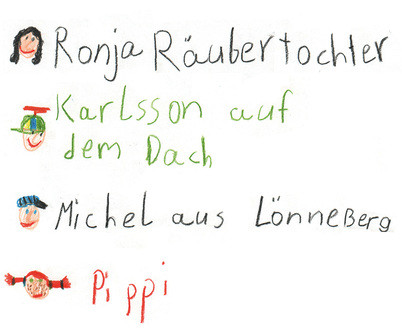 Ronja Räubertochter
Karlsson auf
dem Dach
Michel aus Lönneberg
Pippi